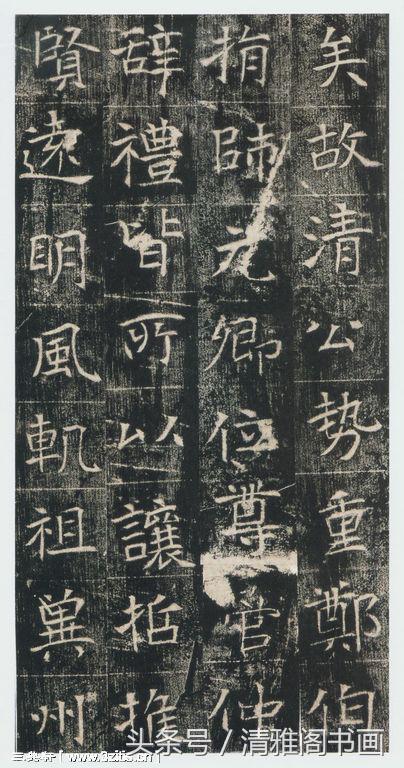 矣故清公势重鄭伯
捐師元卿位尊管仲
辞禮皆所以讓哲推
賢遠明風軌祖冀州
头条号 / 清雅阁书画